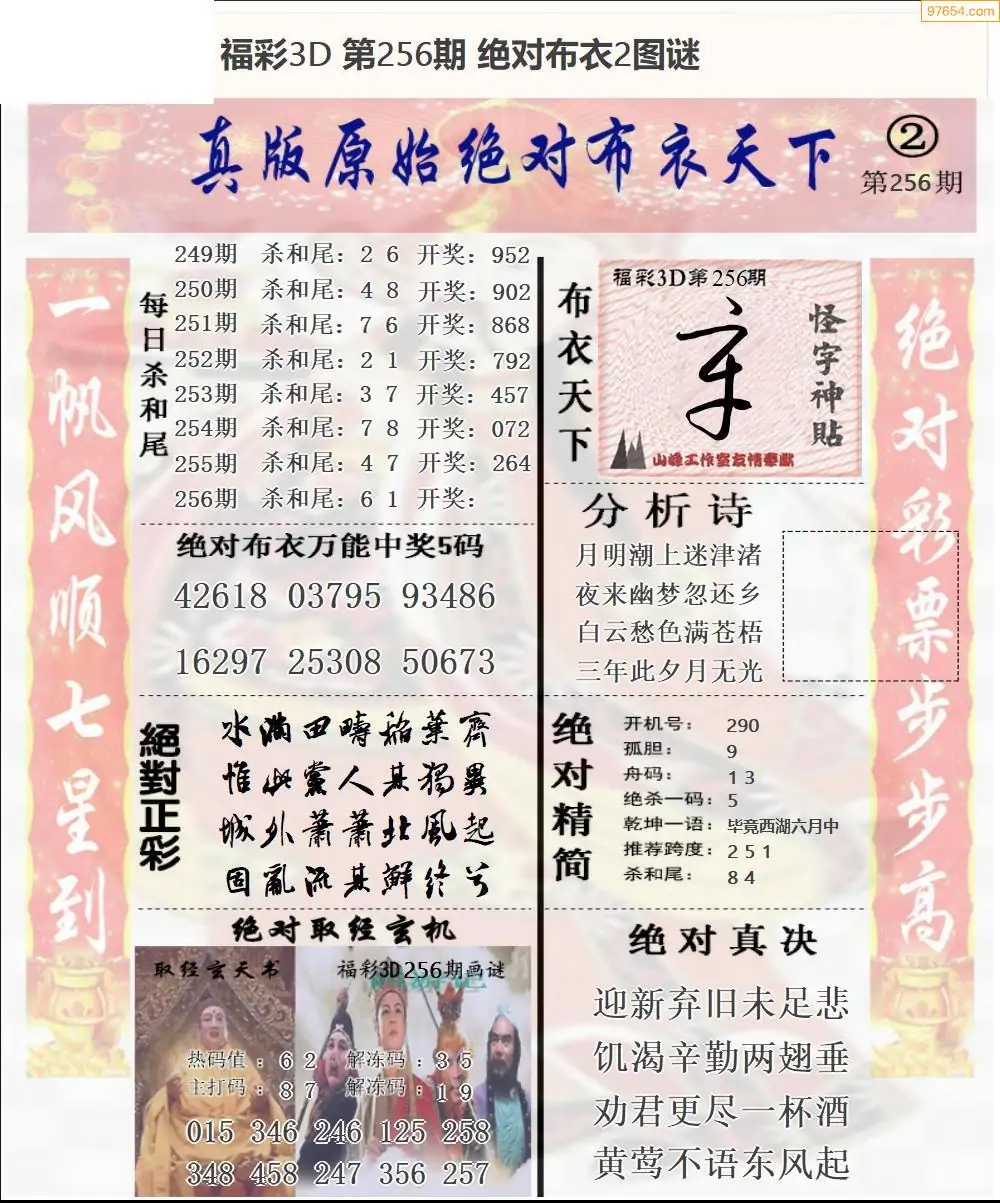 97654.com
福彩3D 第256期 绝对布衣2图谜
真版原始绝对布衣天下
②
第256期
一帆风顺七星到
每日杀和尾
249期 杀和尾：2 6 开奖：952
250期 杀和尾：4 8 开奖：902
251期 杀和尾：7 6 开奖：868
252期 杀和尾：2 1 开奖：792
253期 杀和尾：3 7 开奖：457
254期 杀和尾：7 8 开奖：072
255期 杀和尾：4 7 开奖：264
256期 杀和尾：6 1 开奖：
绝对布衣万能中奖5码
42618 03795 93486
16297 25308 50673
絕對正彩
水满田疇稲葉齊
惟此黨人其獨異
城外蕭蕭北風起
固亂流其鮮終兮
绝对取经玄机
取经玄天书
福彩3D256期画谜
热码值：6 2 解冻码：3 5
主打码：8 7 解冻码：1 9
015 346 246 125 258
348 458 247 356 257
布衣天下
福彩3D第256期
怪字神貼
山峰工作室友情奉献
分析诗
月明潮上迷津渚
夜来幽梦忽还乡
白云愁色满苍梧
三年此夕月无光
绝对精简
开机号： 290
孤胆： 9
舟码： 1 3
绝杀一码：5
乾坤一语：毕竟西湖六月中
推荐跨度：2 5 1
杀和尾： 8 4
绝对真决
迎新弃旧未足悲
饥渴辛勤两翅垂
劝君更尽一杯酒
黄莺不语东风起
绝对彩票步步高